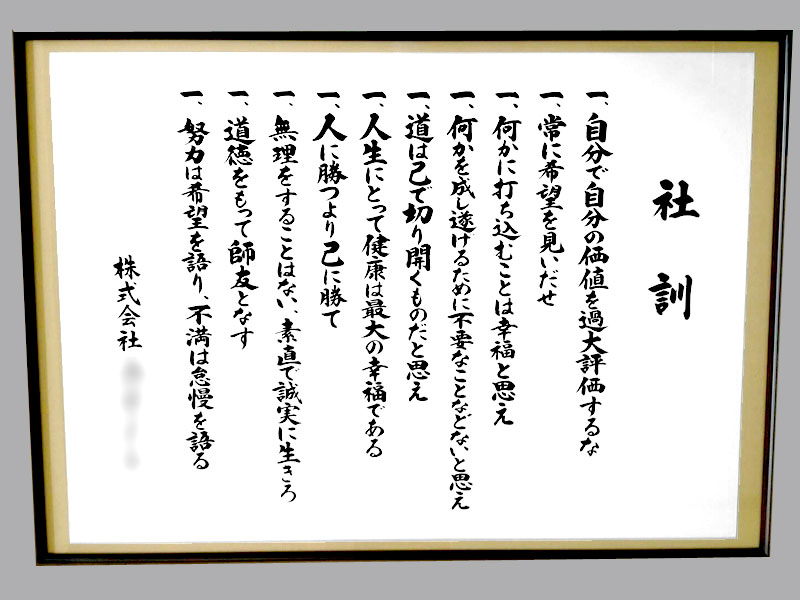 社訓
一、自分で自分の価値を過大評価するな
一、常に希望を見いだせ
一、何かに打ち込むことは幸福と思え
一、何かを成し遂げるために不要なことなどないと思え
一、道は己で切り開くものだと思え
一、人生にとって健康は最大の幸福である
一、人に勝つより己に勝て
一、無理をすることはない、素直で誠実に生きろ
一、道徳をもって師友となす
一、努力は希望を語り、不満は怠慢を語る
株式会社